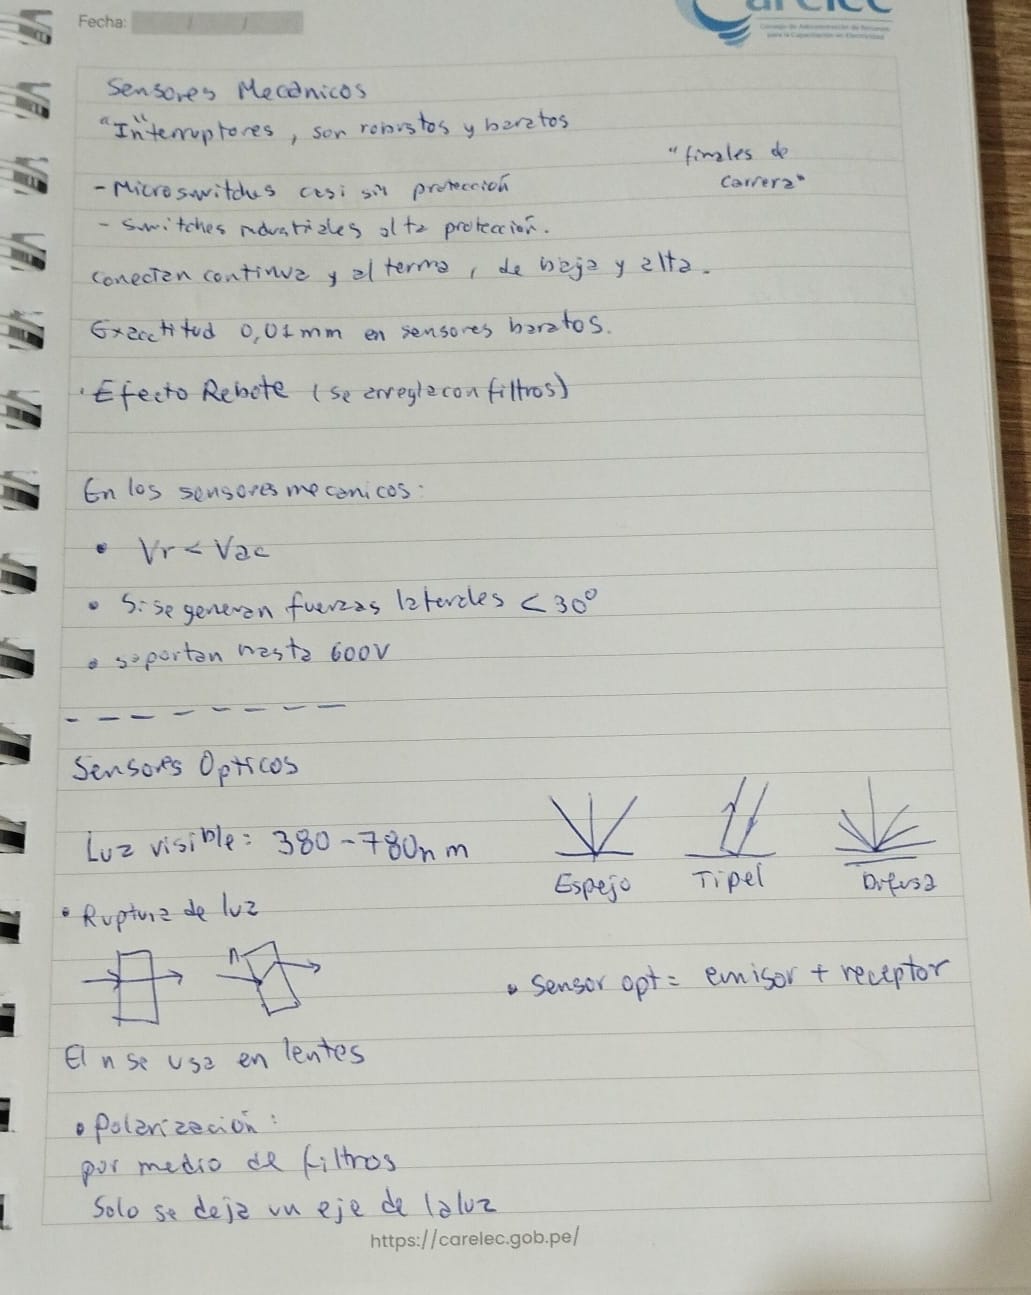 Fecha: / /
Carelec
Sensores Mecánicos
"Interruptores", son robustos y baratos
"finales de
carrera"
- Microswitches casi sin protección
- Switches industriales alta protección.
conectan continua y alterna, de baja y alta.
Exactitud 0,01 mm en sensores baratos.
· Efecto Rebote (se arregla con filtros)
En los sensores mecanicos:
• Vr < Vac
• Si se generan fuerzas laterales < 30°
• soportan hasta 600V
- - - - - - - -
Sensores Opticos
Luz visible: 380 - 780nm
Espejo Tipel Difusa
• Ruptura de luz
n
• Sensor opt = emisor + receptor
El n se usa en lentes
• Polarización:
por medio de filtros
Solo se deja un eje de la luz
https://carelec.gob.pe/